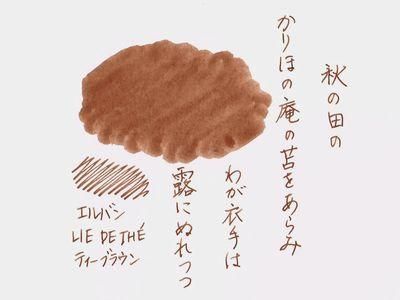 秋の田の
かりほの庵の苫をあらみ
わが衣手は
露にぬれつつ
エルバン
LIE DE THÉ
ティーブラウン